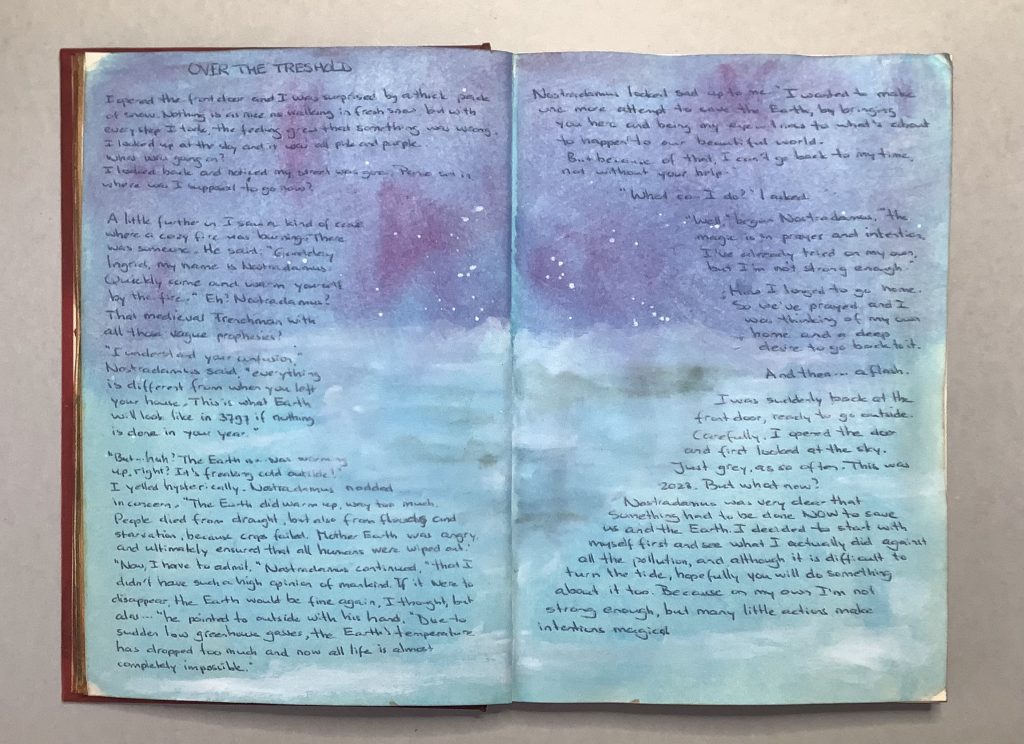 OVER THE TRESHOLD
I opened the front door and I was surprised by a thick pack
of snow. Nothing is as nice as walking in fresh snow but with
every step I took, the feeling grew that something was wrong.
I looked up at the sky and it was all pink and purple.
What was going on?
I looked back and noticed my street was gone. Panic set in
where was I supposed to go now?
A little further on I saw a kind of cave
where a cozy fire was burning. There
was someone. He said: "Goodday
Ingrid, my name is Nostradamus.
Quickly come and warm yourself
by the fire." Eh? Nostradamus?
That medieval Frenchman with
all those vague prophesies?
"I understand your confusion,"
Nostradamus said, "everything
is different from when you left
your house. This is what Earth
will look like in 3797 if nothing
is done in your year."
"But.. huh? The Earth was warming
up, right? It's freaking cold outside!"
I yelled hysterically. Nostradamus nodded
in concern, "The Earth did warm up, way too much.
People died from draught, but also from floods and
starvation, because crops failed. Mother Earth was angry
and ultimately ensured that all humans were wiped out."
"Now, I have to admit," Nostradamus continued, "that I
didn't have such a high opinion of mankind. If it were to
disappear, the Earth would be fine again, I thought, but
alas..." he pointed to outside with his hand, "Due to
sudden low greenhouse gasses, the Earth's temperature
has dropped too much and now all life is almost
completely impossible."
Nostradamus looked sad up to me. "I wanted to make
one more attempt to save the Earth, by bringing
you here and being my eyewitness to what's about
to happen to our beautiful world.
But because of that, I can't go back to my time,
not without your help."
"What can I do?" I asked.
"Well," began Nostradamus, "the
magic is in prayer and intention.
I've already tried on my own,
but I'm not strong enough."
How I longed to go home.
So we've prayed, and I
was thinking of my own
home and a deep
desire to go back to it.
And then... a flash.
I was suddenly back at the
front door, ready to go outside.
Carefully, I opened the door
and first looked at the sky.
Just grey, as so often. This was
2023. But what now?
Nostradamus was very clear that
something had to be done NOW to save
us and the Earth. I decided to start with
myself first and see what I actually did against
all the pollution, and although it is difficult to
turn the tide, hopefully you will do something
about it too. Because on my own I'm not
strong enough, but many little actions make
intentions magical